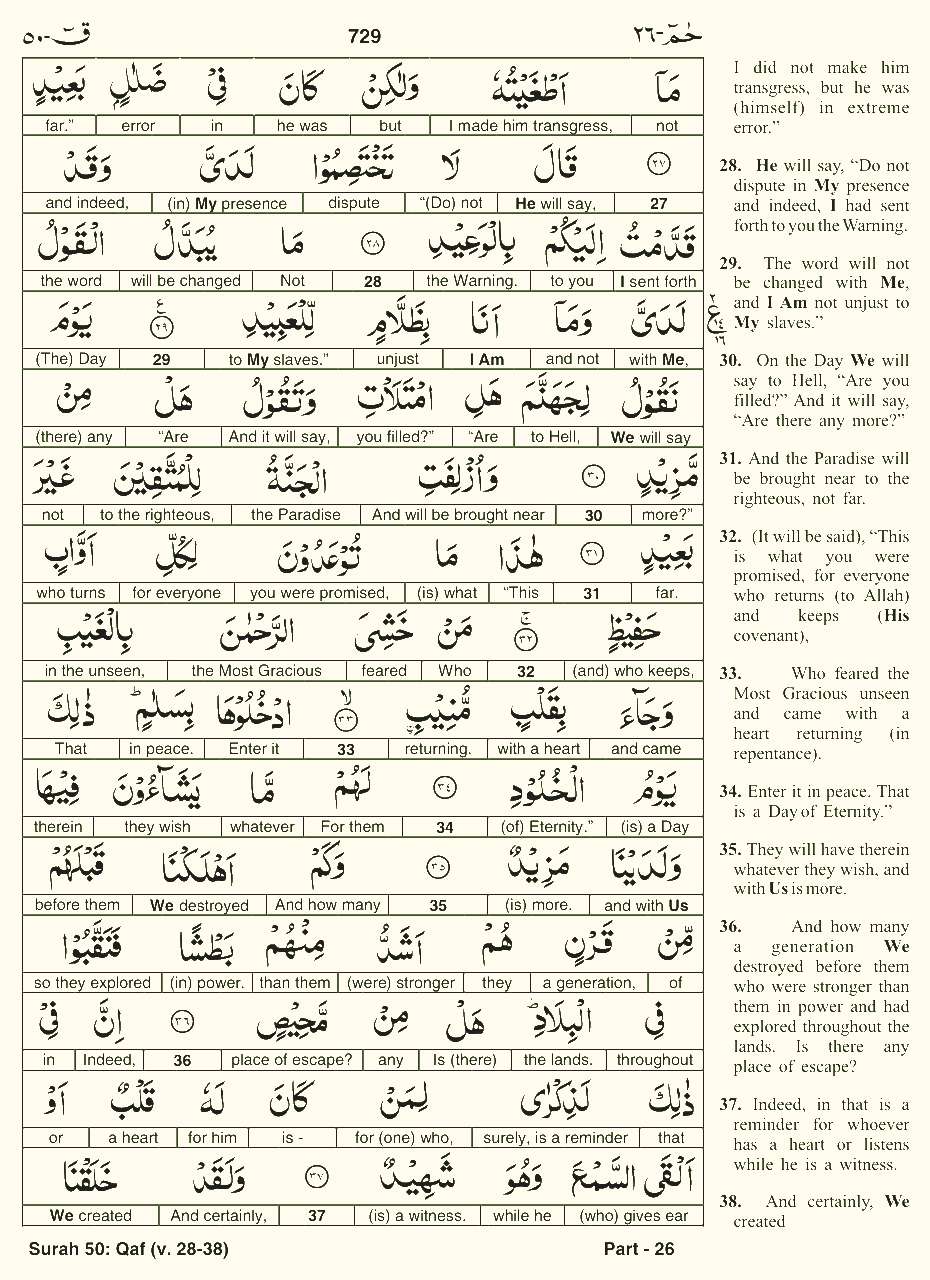 قٓ-٥٠ 729 حٰمٓ-٢٦
مَآ اَطْغَيْتُهٗ وَلٰكِنْ كَانَ فِيْ ضَلٰلٍۭ بَعِيْدٍ
far.” error in he was but I made him transgress, not
۝٢٧ قَالَ لَا تَخْتَصِمُوْا لَدَيَّ وَقَدْ
and indeed, (in) My presence dispute “(Do) not He will say, 27
قَدَّمْتُ اِلَيْكُمْ بِالْوَعِيْدِ ۝٢٨ مَا يُبَدَّلُ الْقَوْلُ
the word will be changed Not 28 the Warning. to you I sent forth
لَدَيَّ وَمَآ اَنَا بِظَلَّامٍ لِّلْعَبِيْدِ ۝٢٩ ع يَوْمَ
(The) Day 29 to My slaves.” unjust I Am and not with Me,
نَقُوْلُ لِجَهَنَّمَ هَلِ امْتَلَاْتِ وَتَقُوْلُ هَلْ مِنْ
(there) any “Are And it will say, you filled?” “Are to Hell, We will say
مَّزِيْدٍ ۝٣٠ وَاُزْلِفَتِ الْجَنَّةُ لِلْمُتَّقِيْنَ غَيْرَ
not to the righteous, the Paradise And will be brought near 30 more?”
بَعِيْدٍ ۝٣١ هٰذَا مَا تُوْعَدُوْنَ لِكُلِّ اَوَّابٍ
who turns for everyone you were promised, (is) what “This 31 far.
حَفِيْظٍ ۝٣٢ۚ مَنْ خَشِيَ الرَّحْمٰنَ بِالْغَيْبِ
in the unseen, the Most Gracious feared Who 32 (and) who keeps,
وَجَآءَ بِقَلْبٍ مُّنِيْبِۣ ۝٣٣ۙ ادْخُلُوْهَا بِسَلٰمٍؕ ذٰلِكَ
That in peace. Enter it 33 returning. with a heart and came
يَوْمُ الْخُلُوْدِ ۝٣٤ لَهُمْ مَّا يَشَآءُوْنَ فِيْهَا
therein they wish whatever For them 34 (of) Eternity.” (is) a Day
وَلَدَيْنَا مَزِيْدٌ ۝٣٥ وَكَمْ اَهْلَكْنَا قَبْلَهُمْ
before them We destroyed And how many 35 (is) more. and with Us
مِّنْ قَرْنٍ هُمْ اَشَدُّ مِنْهُمْ بَطْشًا فَنَقَّبُوْا
so they explored (in) power. than them (were) stronger they a generation, of
فِي الْبِلَادِؕ هَلْ مِنْ مَّحِيْصٍ ۝٣٦ اِنَّ فِيْ
in Indeed, 36 place of escape? any Is (there) the lands. throughout
ذٰلِكَ لَذِكْرٰى لِمَنْ كَانَ لَهٗ قَلْبٌ اَوْ
or a heart for him is - for (one) who, surely, is a reminder that
اَلْقَى السَّمْعَ وَهُوَ شَهِيْدٌ ۝٣٧ وَلَقَدْ خَلَقْنَا
We created And certainly, 37 (is) a witness. while he (who) gives ear
I did not make him
transgress, but he was
(himself) in extreme
error.”
28. He will say, “Do not
dispute in My presence
and indeed, I had sent
forth to you the Warning.
29. The word will not
be changed with Me,
and I Am not unjust to
My slaves.”
٢ ع ١٤ ١٦
30. On the Day We will
say to Hell, “Are you
filled?” And it will say,
“Are there any more?”
31. And the Paradise will
be brought near to the
righteous, not far.
32. (It will be said), “This
is what you were
promised, for everyone
who returns (to Allah)
and keeps (His
covenant),
33. Who feared the
Most Gracious unseen
and came with a
heart returning (in
repentance).
34. Enter it in peace. That
is a Day of Eternity.”
35. They will have therein
whatever they wish, and
with Us is more.
36. And how many
a generation We
destroyed before them
who were stronger than
them in power and had
explored throughout the
lands. Is there any
place of escape?
37. Indeed, in that is a
reminder for whoever
has a heart or listens
while he is a witness.
38. And certainly, We
created
Surah 50: Qaf (v. 28-38) Part - 26